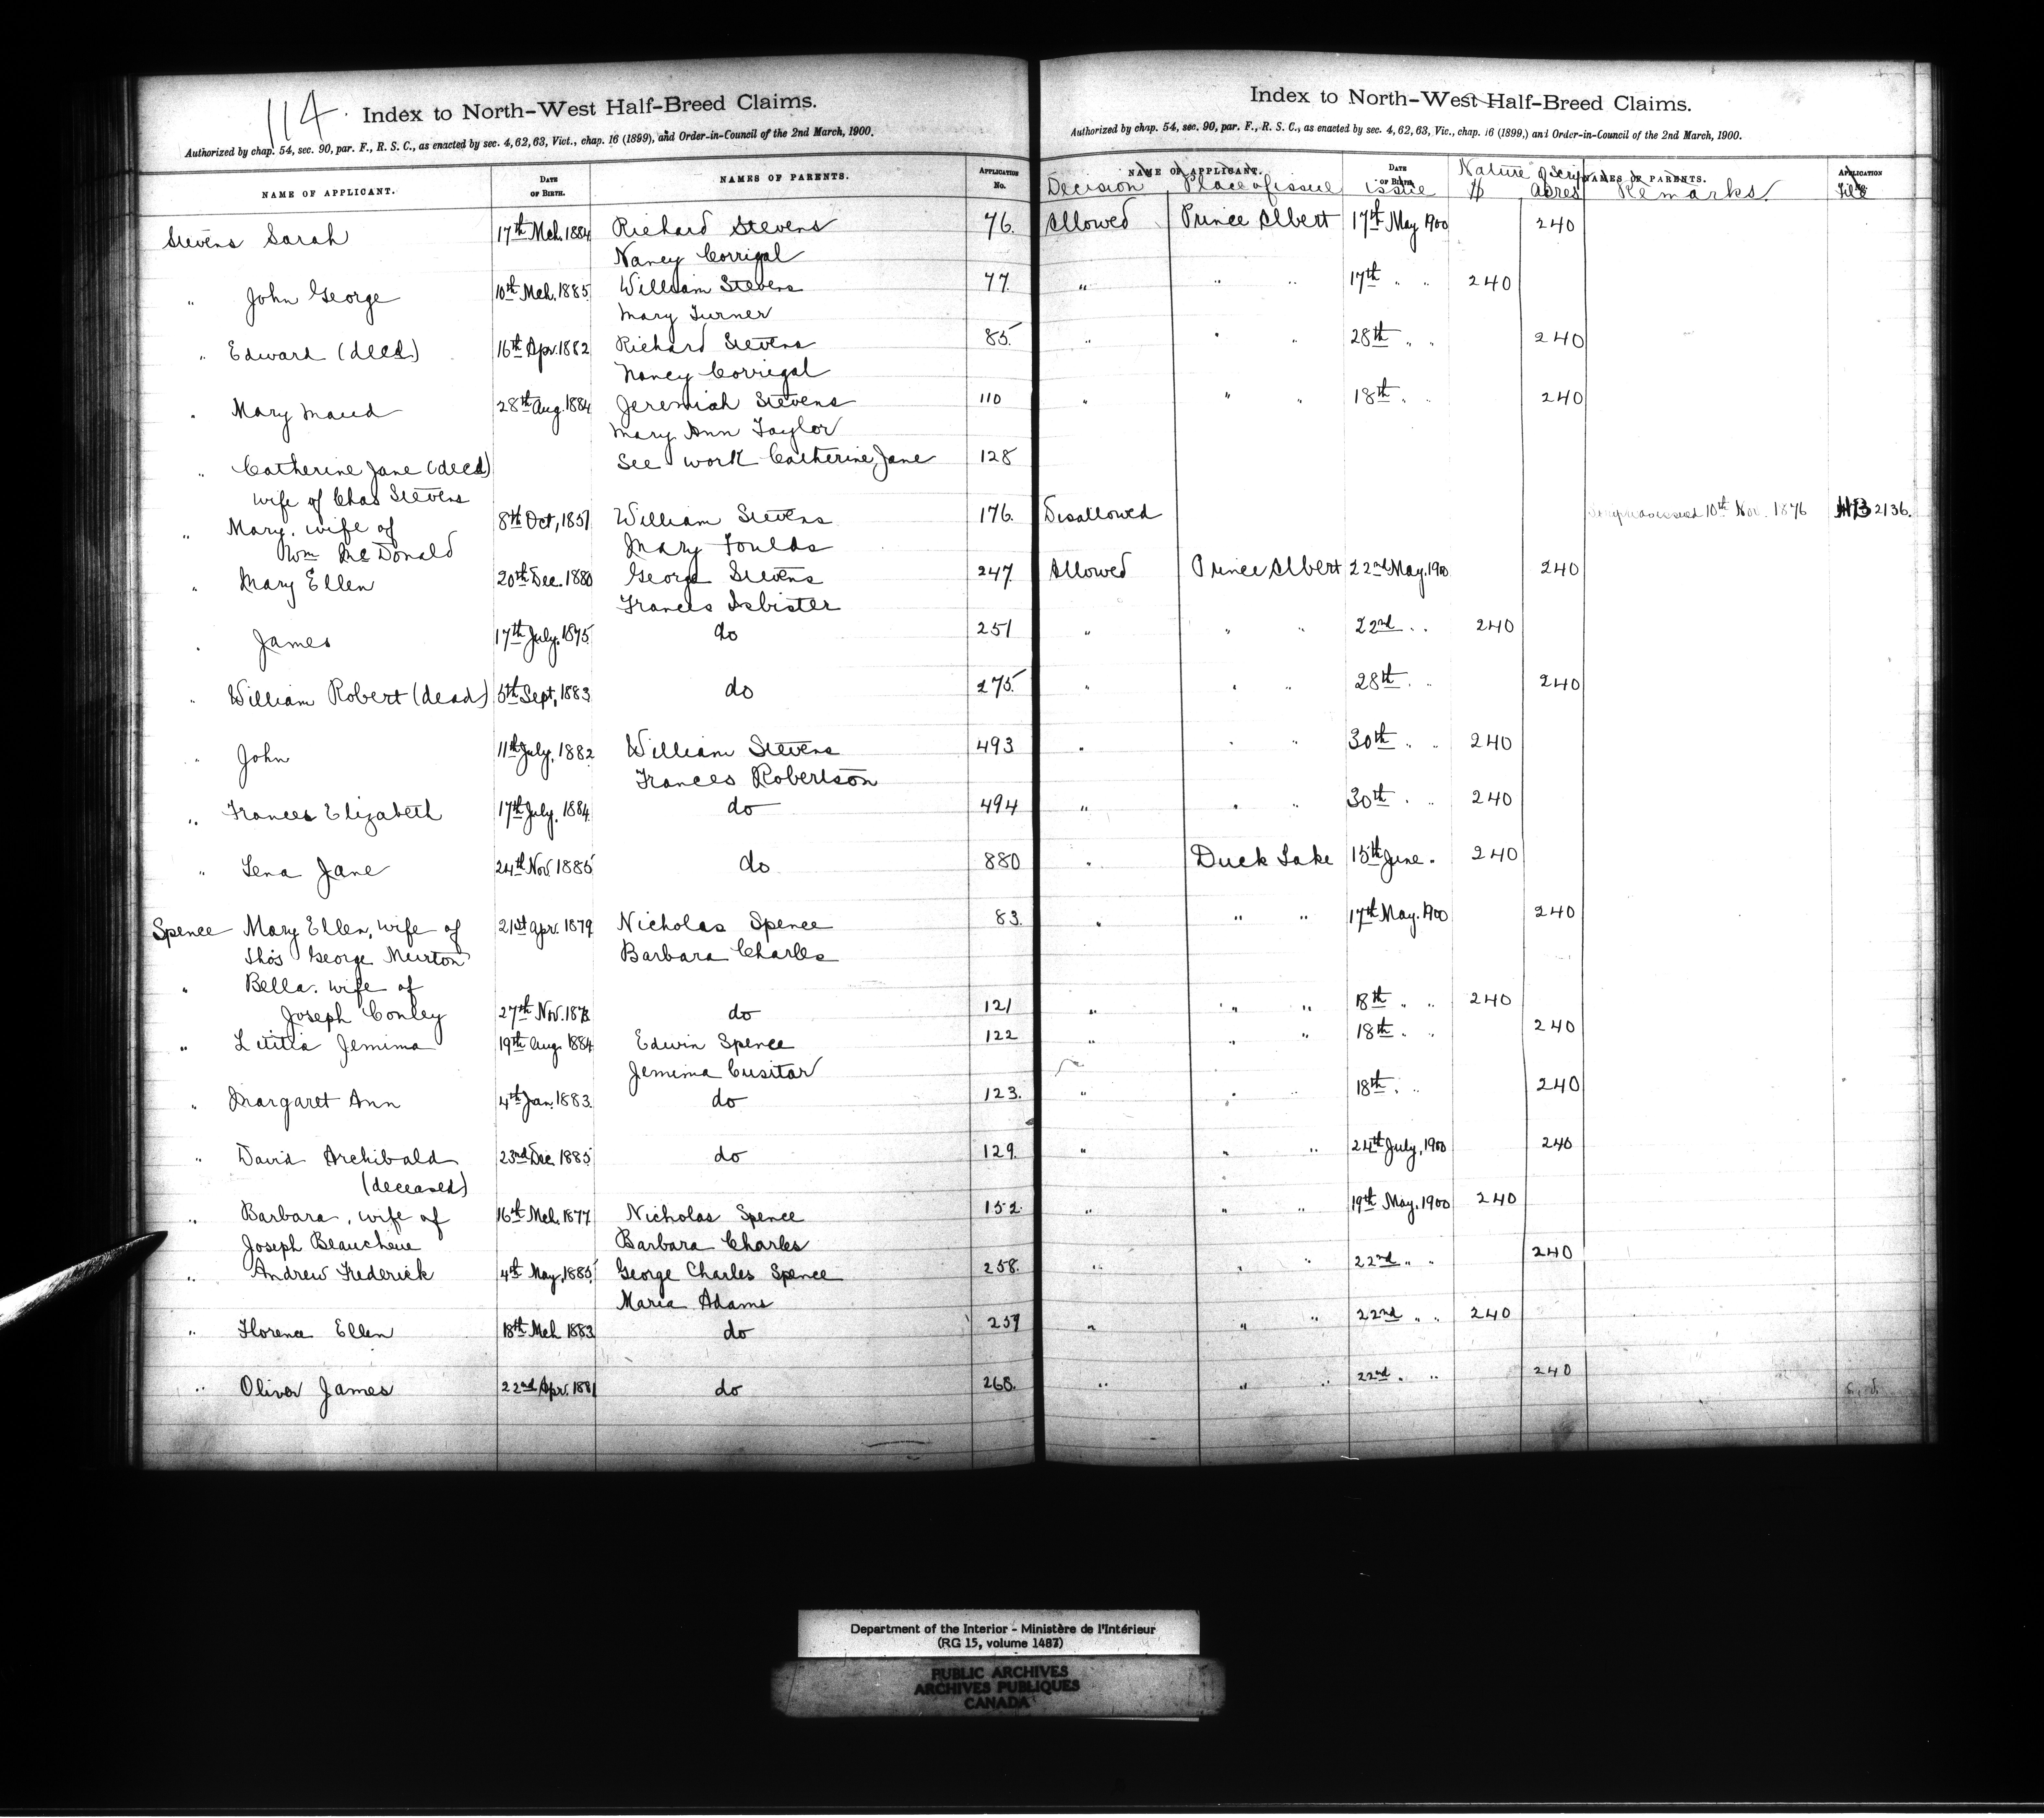 114.
Index to North-West Half-Breed Claims.
Authorized by chap. 54, sec. 90, par. F., R. S. C., as enacted by sec. 4, 62, 63, Vict., chap. 16 (1899), and Order-in-Council of the 2nd March, 1900.
NAME OF APPLICANT. DATE OF BIRTH. NAMES OF PARENTS. APPLICATION No.
Stevens Sarah 17th Mch. 1884 Richard Stevens 76.
Nancy Corrigal
" John George 10th Mch. 1885 William Stevens 77.
Mary Turner
" Edward (decd) 16th Apr. 1882 Richard Stevens 85.
Nancy Corrigal
" Mary Maud 28th Aug. 1884 Jeremiah Stevens 110
Mary Ann Taylor
" Catherine Jane (decd) See work Catherine Jane 128
wife of Chas Stevens
" Mary, wife of 8th Oct, 1851 William Stevens 176.
Wm McDonald Mary Foulds
" Mary Ellen 20th Dec. 1880 George Stevens 247
Frances Isbister
" James 17th July, 1875 do 251
" William Robert (dead) 5th Sept, 1883 do 275.
" John 11th July, 1882 William Stevens 493
Frances Robertson
" Frances Elizabeth 17th July, 1884 do 494
" Lena Jane 24th Nov. 1885 do 880
Spence Mary Ellen, wife of 21st Apr. 1879 Nicholas Spence 83.
Thos George Murton Barbara Charles
" Bella, wife of
Joseph Conley 27th Nov. do 121
" Letitia Jemima 19th Aug. 1884 Edwin Spence 122
Jemima Cusitar
" Margaret Ann 4th Jan. 1883. do 123.
" David Archibald 23rd Dec. 1885 do 129.
(deceased)
" Barbara, wife of 16th Mch. 1877 Nicholas Spence 152.
Joseph Beauchene Barbara Charles
" Andrew Frederick 4th May, 1885 George Charles Spence 258.
Maria Adams
" Florence Ellen 18th Mch 1883 do 259
" Oliver James 22nd Apr. 1881 do 268.
Index to North-West Half-Breed Claims.
Authorized by chap. 54, sec. 90, par. F., R. S. C., as enacted by sec. 4, 62, 63, Vic., chap. 16 (1899,) and Order-in-Council of the 2nd March, 1900.
NAME OF APPLICANT. DATE OF BIRTH NAMES OF PARENTS. APPLICATION No.
Decision Place of issue issue Nature of Scrip $ Acres Remarks. File
Allowed Prince Albert 17th May 1900 240
" " " 17th " " 240
" " " 28th " " 240
" " " 18th " " 240
Disallowed Scrip was issued 10th Nov. 1876 HB 2136.
Allowed Prince Albert 22nd May. 1900 240
" " " 22nd " " 240
" " " 28th " " 240
" " " 30th " " 240
" " " 30th " " 240
" Duck Lake 15th June " 240
" " " 17th May. 1900 240
" " " 18th " " 240
" " " 18th " " 240
" " " 18th " " 240
" " " 24th July, 1900 240
" " " 19th May, 1900 240
" " " 22nd " " 240
" " " 22nd " " 240
" " " 22nd " " 240
Department of the Interior - Ministère de l'Intérieur
(RG 15, volume 1487)
PUBLIC ARCHIVES
ARCHIVES PUBLIQUES
CANADA